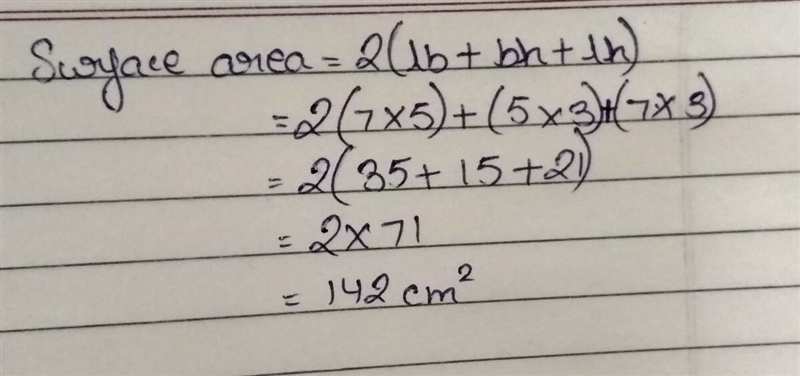 Surface area = 2(lb + bh + lh)
= 2(7×5) + (5×3)+(7×3)
= 2(35 + 15 + 21)
= 2×71
= 142 cm²